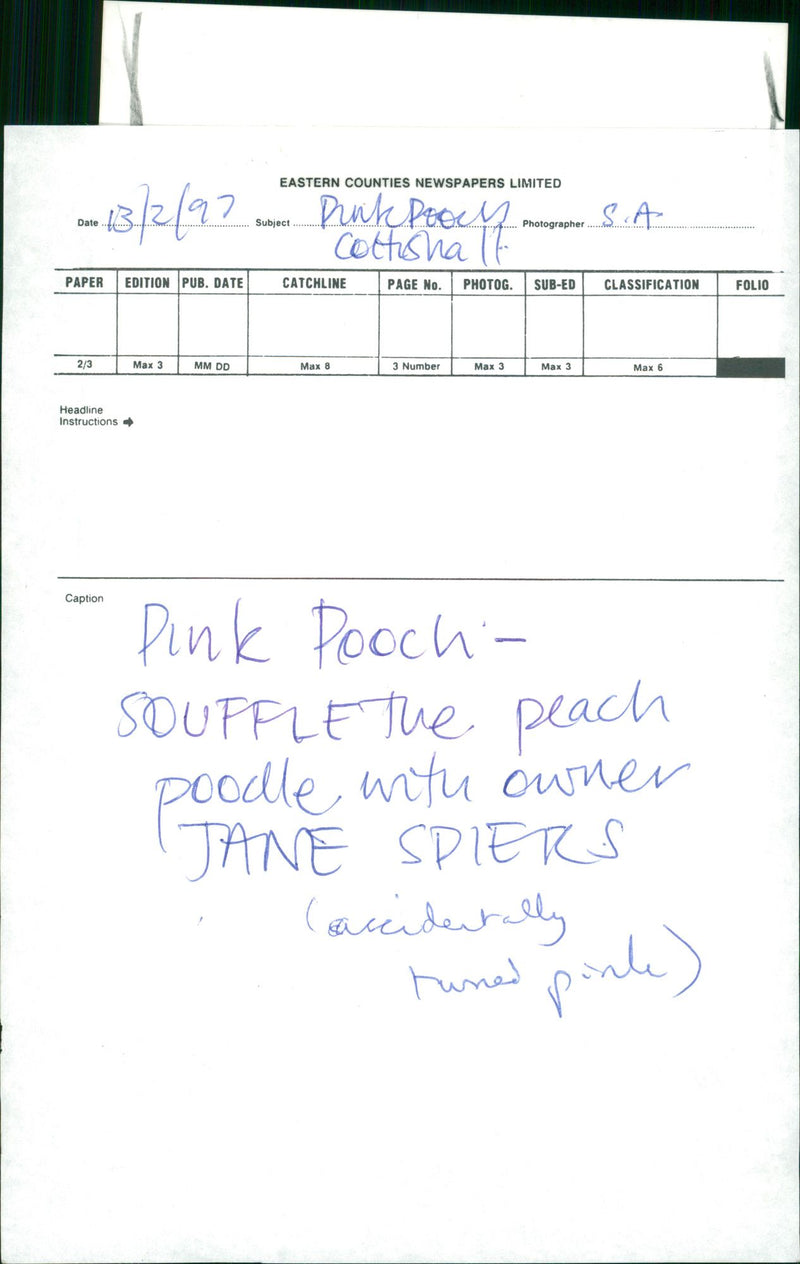 EASTERN COUNTIES NEWSPAPERS LIMITED
Date 13/2/97 Subject Pink Pooch Photographer S.A
Coltishall
PAPER EDITION PUB. DATE CATCHLINE PAGE No. PHOTOG. SUB-ED CLASSIFICATION FOLIO
2/3 Max 3 MM DD Max 8 3 Number Max 3 Max 3 Max 6
Headline
Instructions
Caption
Pink Pooch:-
SOUFFLE the peach
poodle with owner
JANE SPIERS
(accidentally
turned pink)